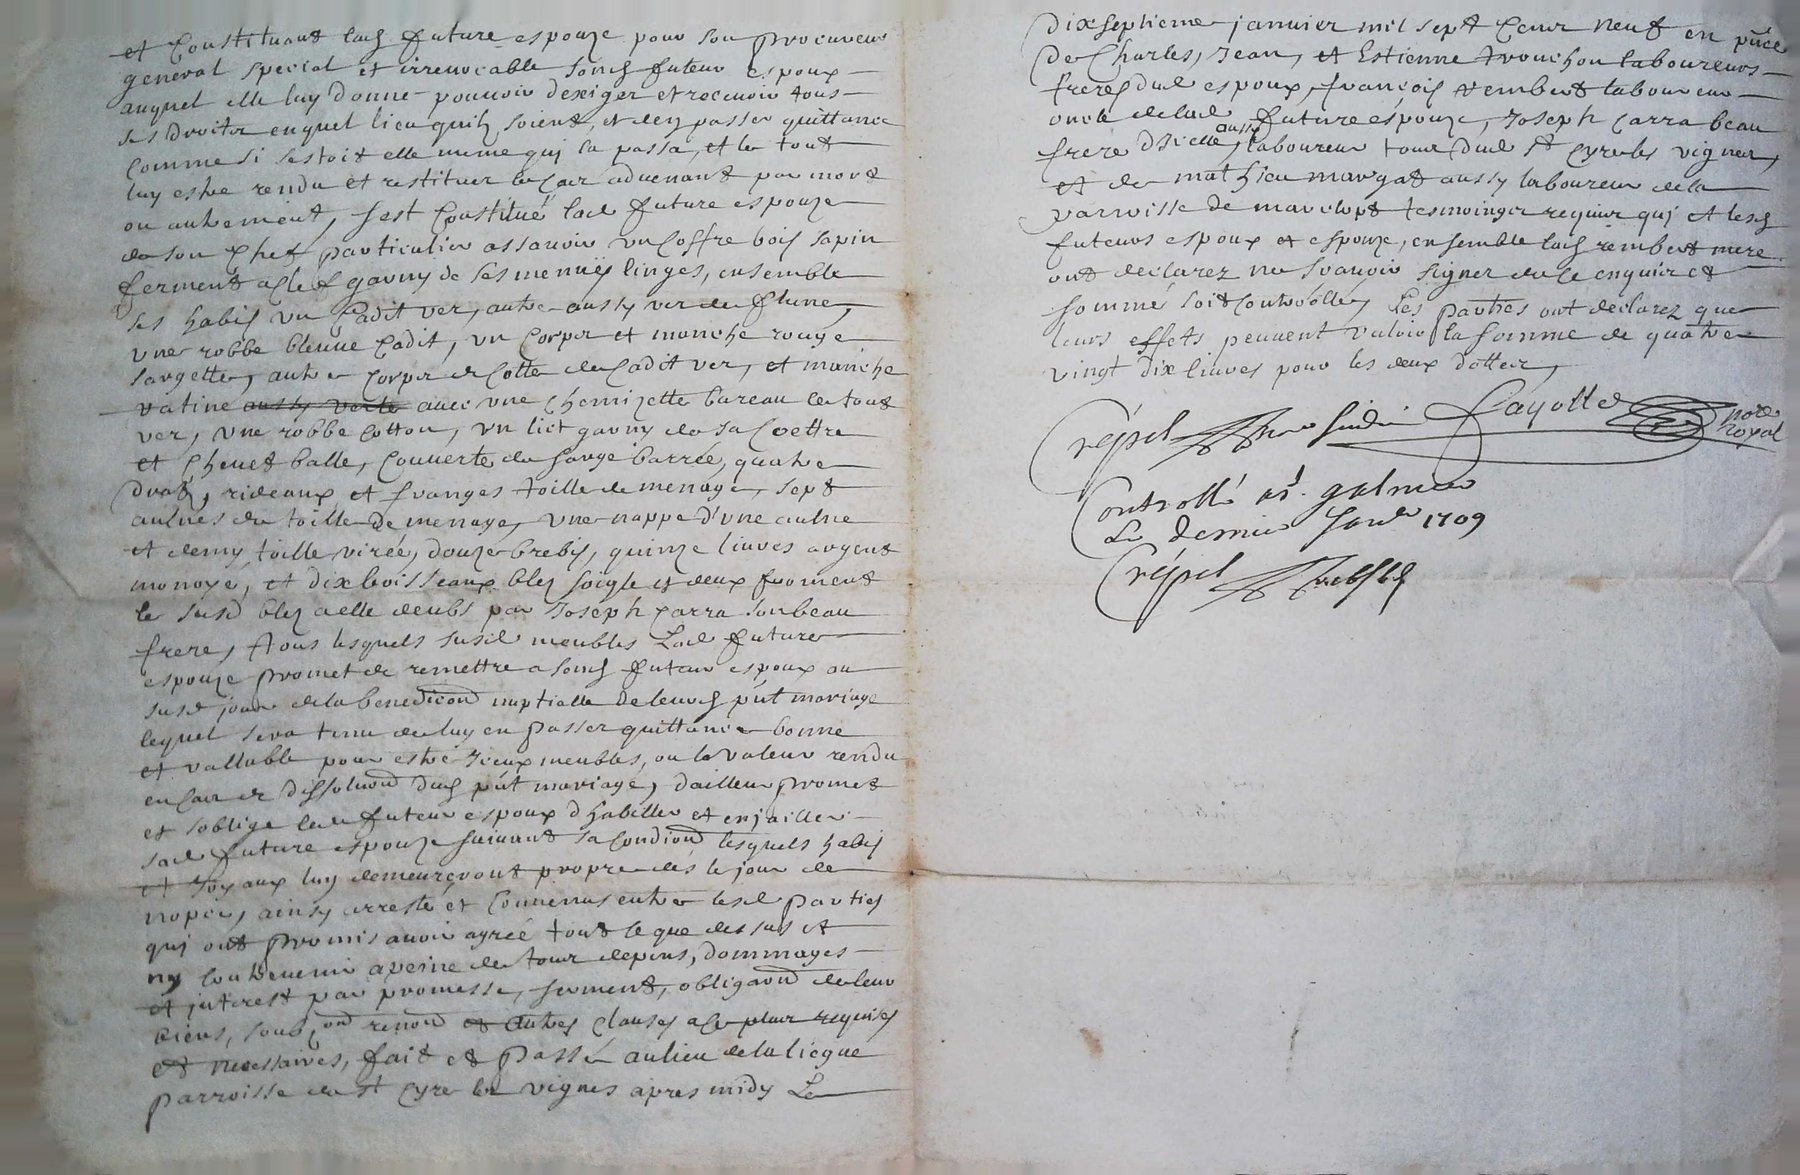 et Constituant lad future espouze pour son procureur
general special et irrevocable sond futeur espoux
auquel elle luy donne pouvoir dexiger et recevoir tous
ses droitz en quel lieu quilz soient, et den passer quittance
comme si sestoit elle mesme qui la passa, et le tout
luy estre rendu et restituer le cas advenant par mort
ou autrement, sest Constitué lad future espouze
de son chef particulier assavoir un Coffre bois sapin
ferment a clef garny de ses menües linges, ensemble
ses habis un Cadit ver, autre aussy ver de
une robbe bleuüe Cadit, un Corps et manche rouge
sargette, autre corps et Cotte de Cadit ver, et manche
ratine aussy verte avec une chemizette bureau le tout
ver, une robbe Cotton, un lict garny de sa Coettre
et chevet balle, couverte de sarge barrée, quatre
draps, rideaux et franges toille de menage, sept
aulnes de toille de menage, une nappe d'une aulne
et demy toille virée, douze brebis, quinze livres argent
monoyé, et dix boisseaux blez soigle et deux froment
le susd blez a elle deubs par Joseph Carra son beau
frere, tous lesquels susd meubles Lad future
espouze promet de remettre a sond futeur espoux au
susd jour de la benediction nuptialle de leurd pñt mariage
lequel sera tenu de luy en passer quittance bonne
et vallable pour estre iceux meubles, ou la valeur rendu
en cas de dissolution dud pñt mariage, d'ailleur promet
et soblige led futeur espoux d'habiller et enjailler
sad future espouze suivant sa Condion lesquels habis
et joyaux luy demeureront propre dés le jour de
nopce, ainsy arresté et Convenus entre lesd parties
qui ont promis avoir agréé tout le que dessus et
ny Contrevenir a peine de tous depens, dommages
et interest par promesse, serment, obligaon de leur
biens, soub.on renon et autres clauses a ce plus requises
et necessaires, fait et passé au lieu de la liegue
parroisse de st Cyre les vignes apres midy Le
dix septieme janvier mil sept Cent neuf en pñce
de Charles, Jean, et Estienne tronchon laboureurs
freres dud espoux, françois rembert laboureur
oncle de lad future épouze, Joseph Carra beau
frere d'icelle, aussy laboureur tous dud st Cyre les vignes,
et de mathieu margat aussy laboureur de la
parroisse de marclopt tesmoings requis qui et lesd
futeurs espoux et espouze, ensemble lad rembert mere
ont declarez ne sçavoir signer de ce enquis et
sommé soit Controollé, Les parties ont declarez que
leurs effets peuvent valoir la somme de quatre
vingt dix livres pour les deux dottes,
Crépet Fayolle
no.re royal
Controllé a st. galmier
Le dernier Janr 1709
Crépet